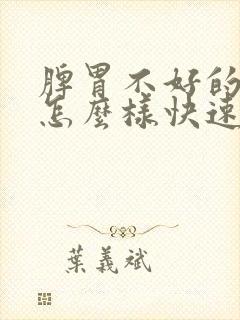 脾胃不好的
怎麼樣快速
葉義斌